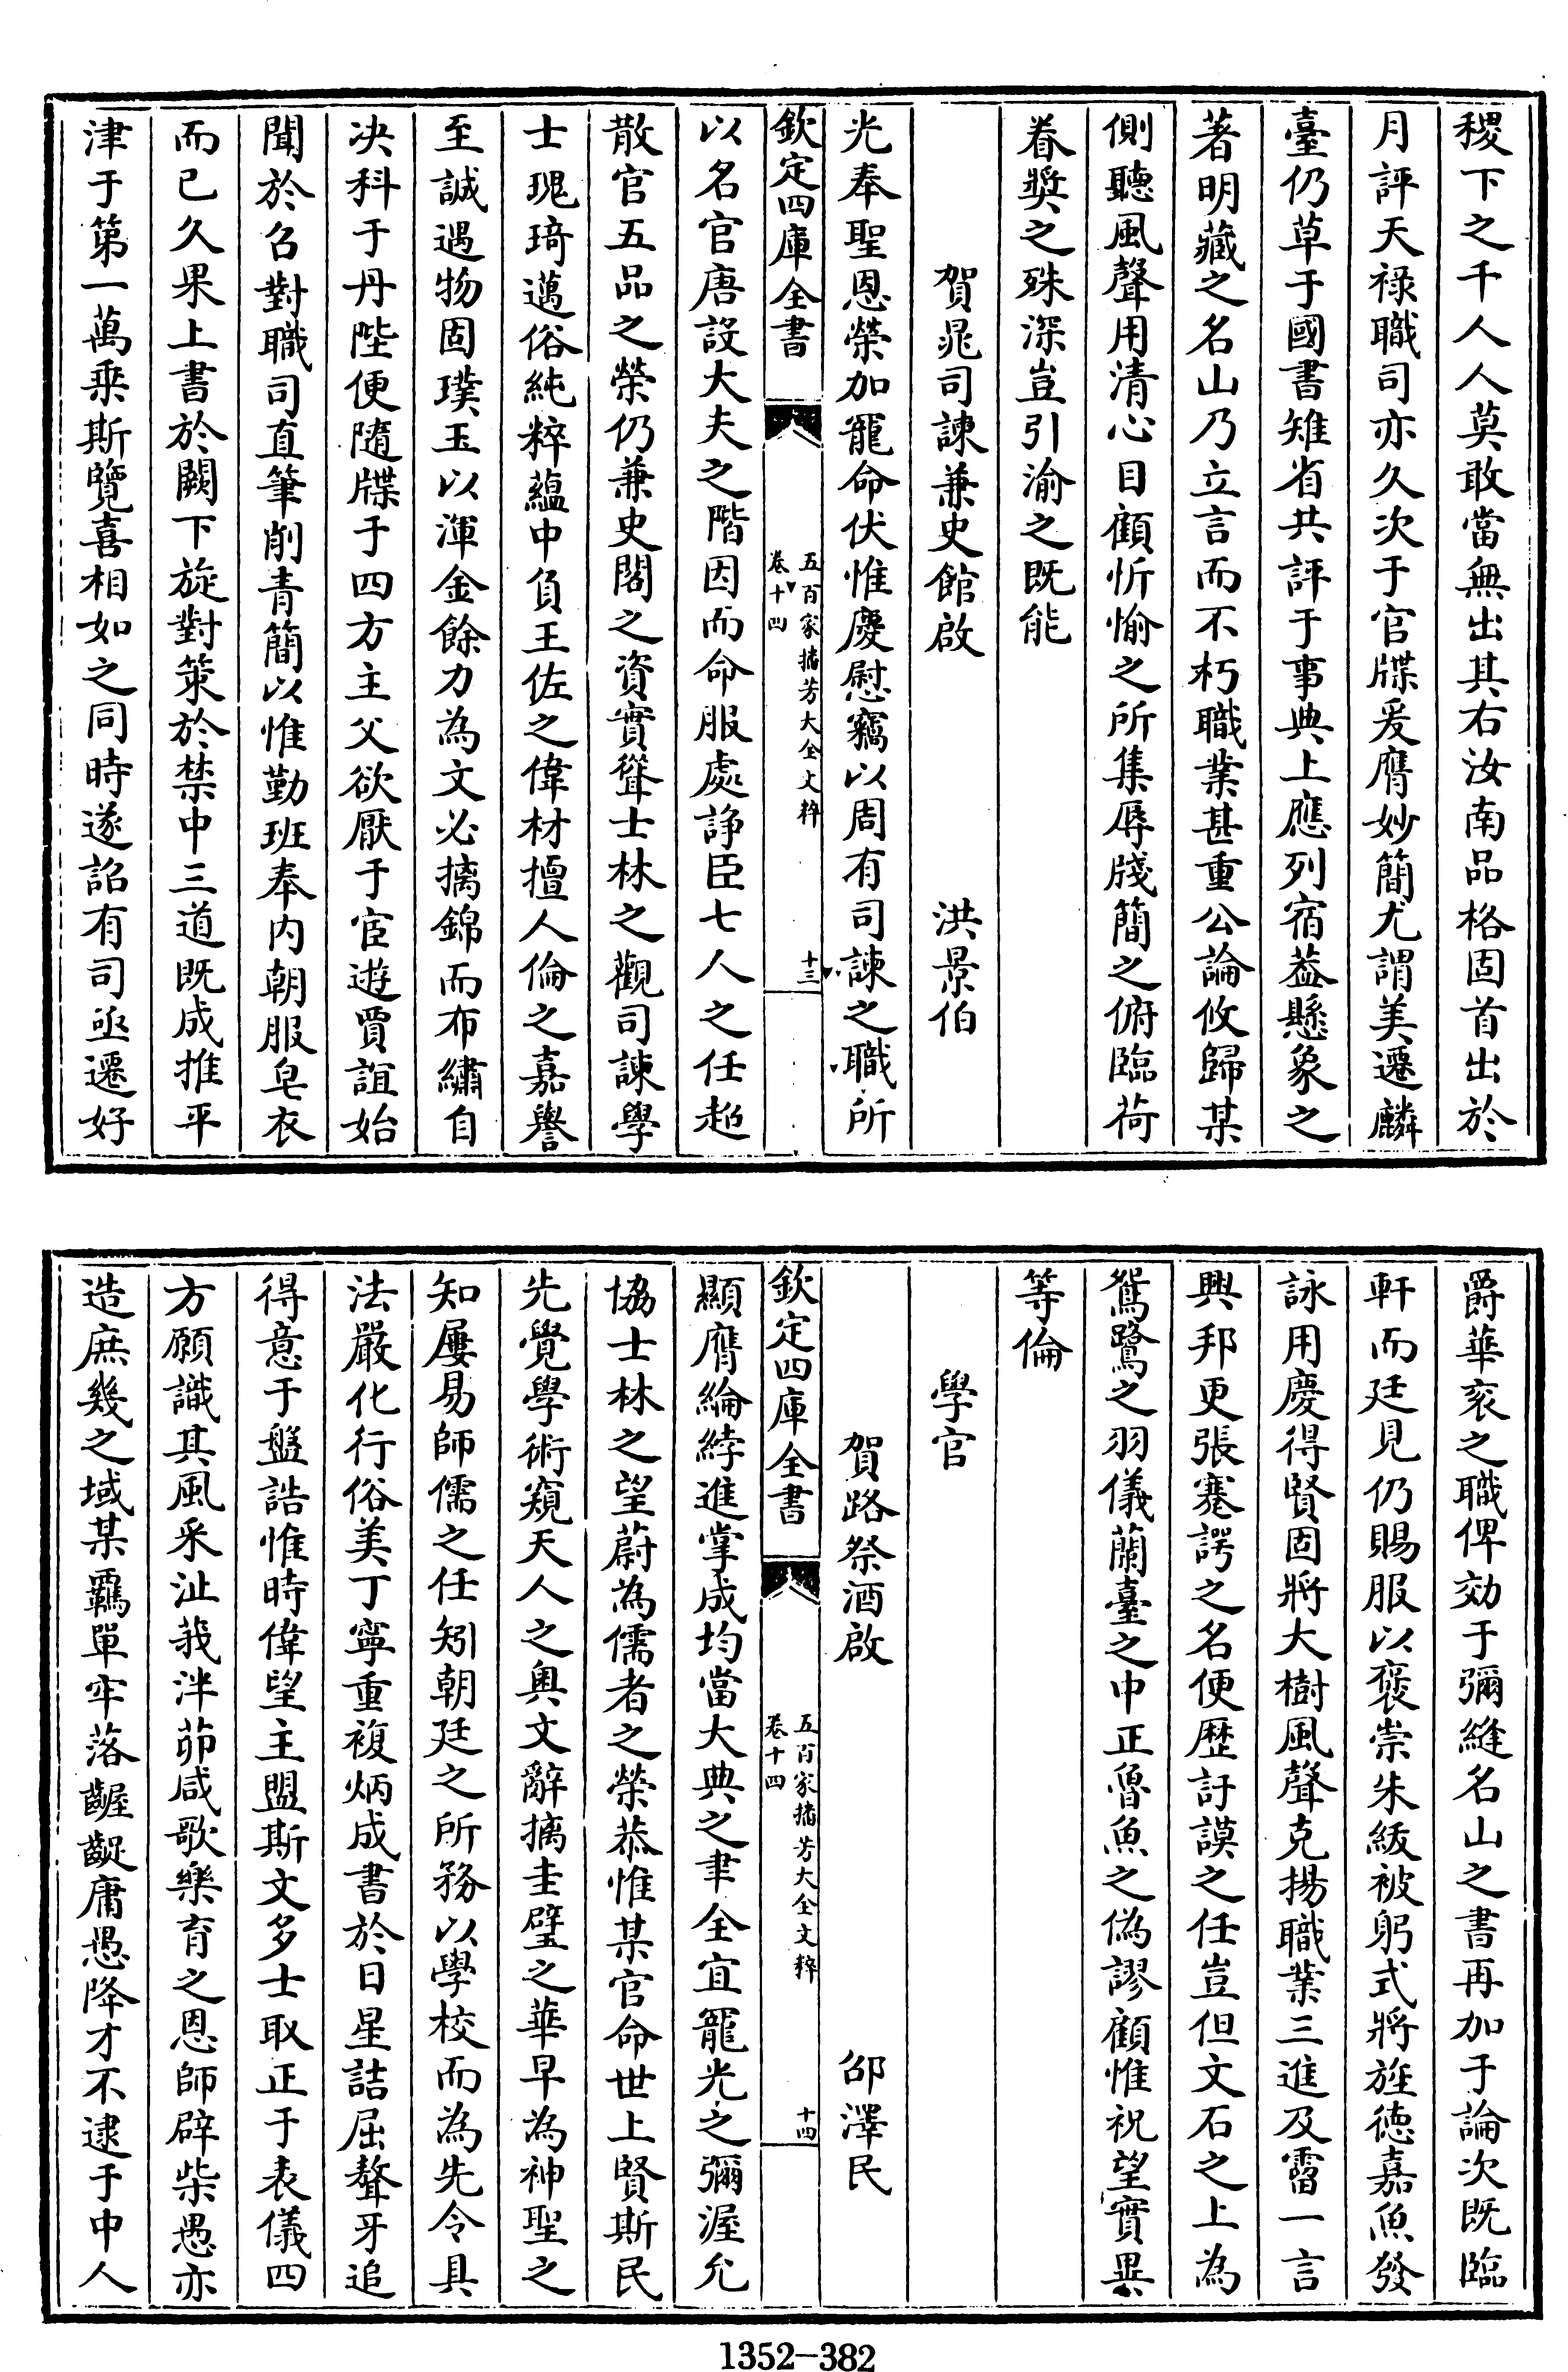 稷下之千人人莫敢當無出其右汝南品格固首出於
月評天祿職司亦久次于官牒爰膺妙簡尤謂美遷麟
臺仍草于國書雉省共評于事典上應列宿葢懸象之
著明藏之名山乃立言而不朽職業甚重公論攸歸某
側聽風聲用清心目顧忻愉之所集辱牋簡之俯臨荷
眷奬之殊深豈引渝之既能
賀晁司諫兼史館啟 洪景伯
光奉聖恩榮加寵命伏惟慶慰竊以周有司諫之職所
欽定四庫全書 五百家播芳大全文粹 卷十四 十三
以名官唐設大夫之階因而命服處諍臣七人之任超
散官五品之榮仍兼史閣之資實聳士林之觀司諫學
士瑰琦邁俗純粹蘊中負王佐之偉材擅人倫之嘉譽
至誠遇物固璞玉以渾金餘力為文必摛錦而布繡自
决科于丹陛便隨牒于四方主父欲厭于宦遊賈誼始
聞於召對職司直筆削青簡以惟勤班奉内朝服皂衣
而已久果上書於闕下旋對策於禁中三道既成推平
津于第一萬乘斯覽喜相如之同時遂詔有司亟遷好
爵華衮之職俾効于彌縫名山之書再加于論次既臨
軒而廷見仍賜服以褒崇朱紱被躬式將旌德嘉魚發
詠用慶得賢固將大樹風聲克揚職業三進及霤一言
興邦更張蹇諤之名便歷訏謨之任豈但文石之上為
鴛鷺之羽儀蘭臺之中正魯魚之偽謬顧惟祝望實異
等倫
學官
賀路祭酒啟 邵澤民
欽定四庫全書 五百家播芳大全文粹 卷十四 十四
顯膺綸綍進掌成均當大典之聿全宜寵光之彌渥允
協士林之望蔚為儒者之榮恭惟某官命世上賢斯民
先覺學術窺天人之奥文辭摛圭璧之華早為神聖之
知屢易師儒之任矧朝廷之所務以學校而為先令具
法嚴化行俗美丁寧重複炳成書於日星詰屈聱牙追
得意于盤誥惟時偉望主盟斯文多士取正于表儀四
方願識其風采沚莪泮茆咸歌樂育之恩師辟柴愚亦
造庶幾之域某羈單牢落齷齪庸愚降才不逮于中人
1352-382